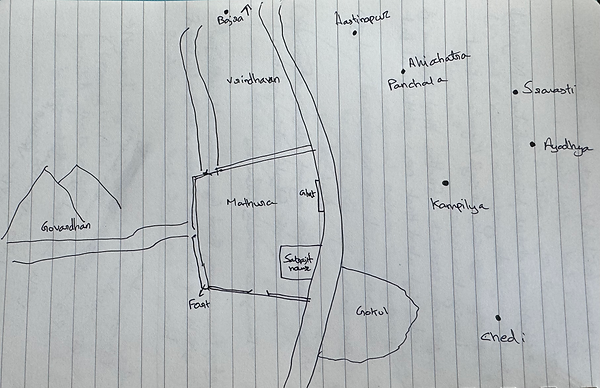 Bajra
Hastinapur
Vrindhavan
Ahichatra
Panchala
Sravasti
Ayodhya
Mathura
Ghat
Kampilya
Govardhan
Satrajit
house
Fort
Gokul
Chedi